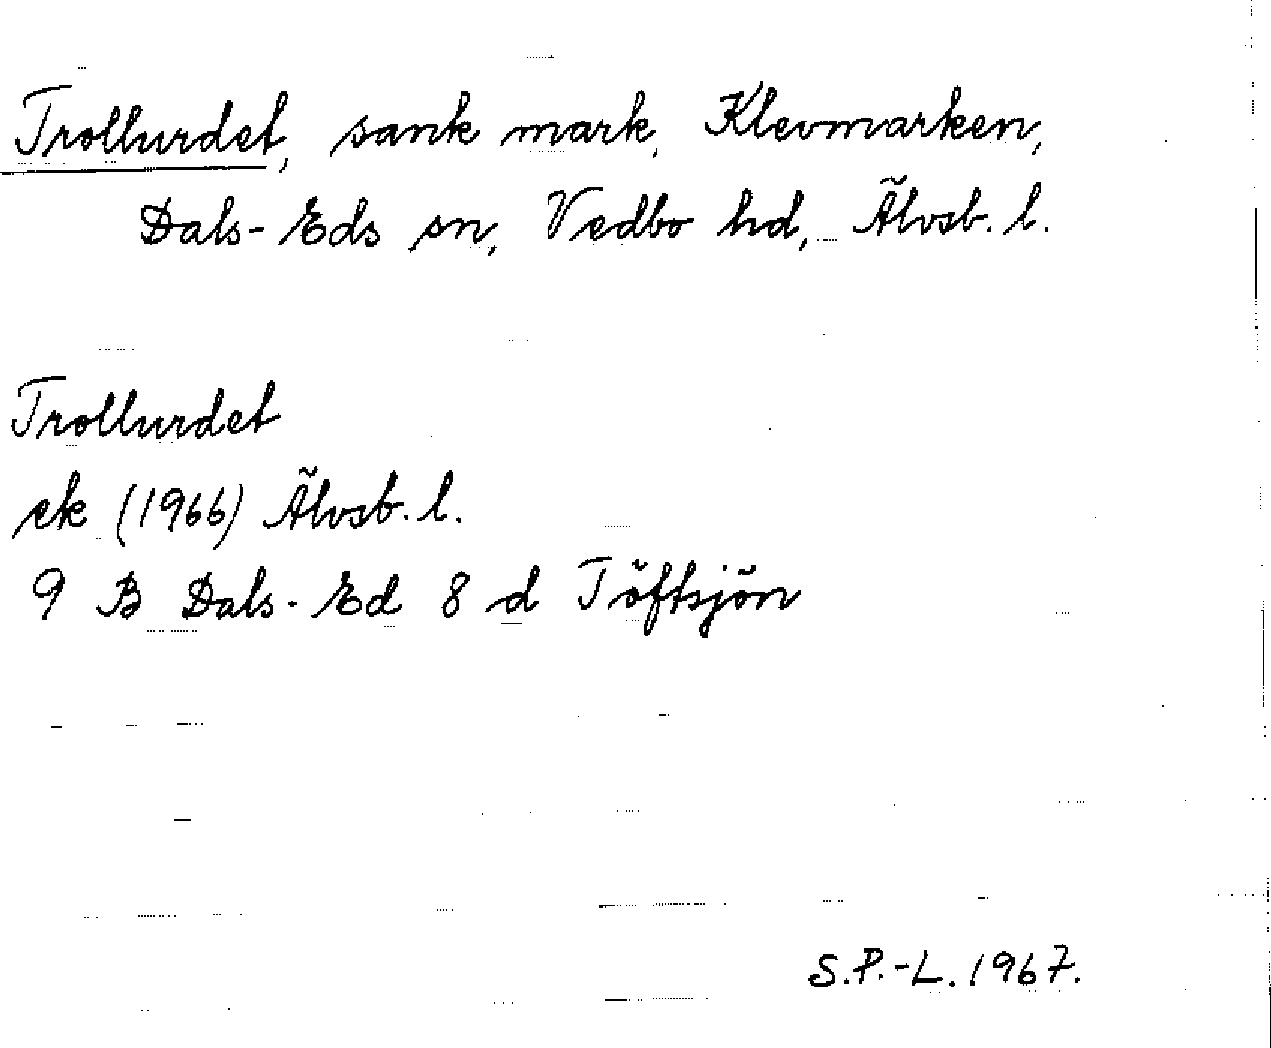 Trollurdet, sank mark, Klevmarken,
Dals-Eds sn, Vedbo hd, Älvsb. l.
Trollurdet
ek (1966) Älvsb. l.
9 B Dals-Ed 8 d Töftsjön
S.P.-L. 1967.